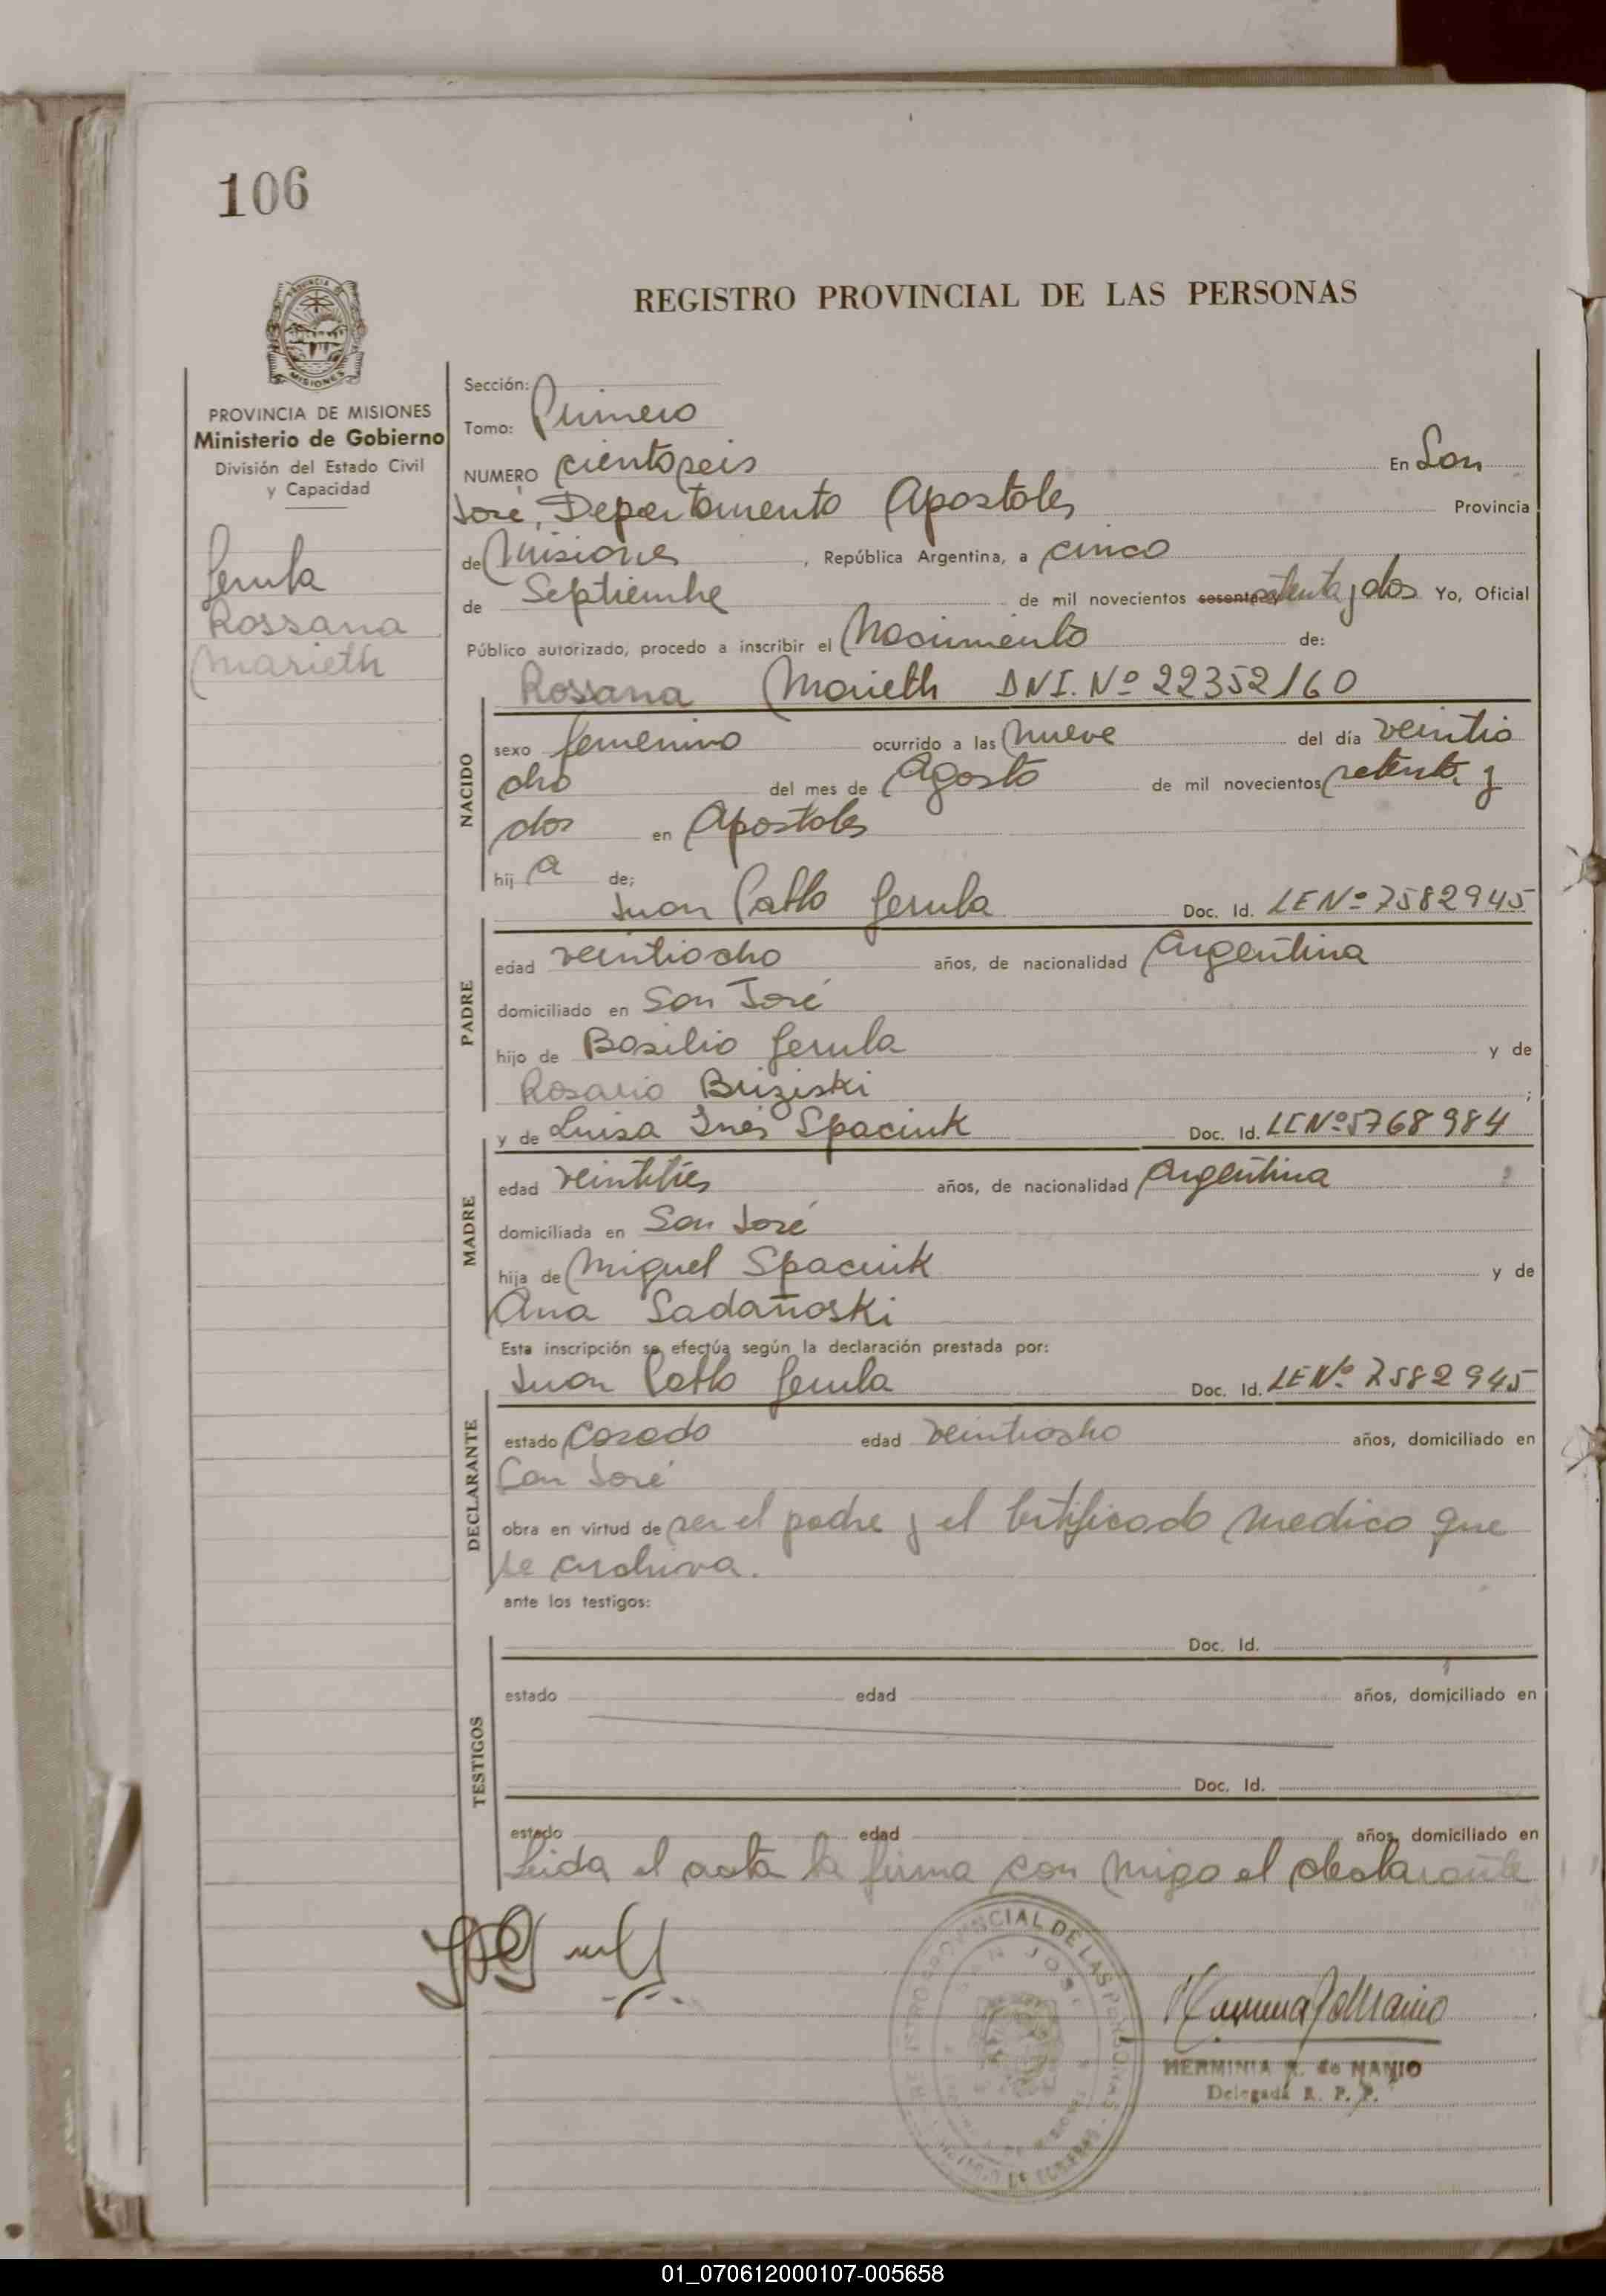 106
REGISTRO PROVINCIAL DE LAS PERSONAS
PROVINCIA DE MISIONES
Ministerio de Gobierno
División del Estado Civil
y Capacidad
Gerula
Rossana
Marieth
Sección:
Tomo: Primero
NUMERO ciento seis En San
José, Departamento Apostoles Provincia
de Misiones, República Argentina, a cinco
de Septiembre de mil novecientos sesenta y setenta y dos Yo, Oficial
Público autorizado, procedo a inscribir el Nacimiento de:
Rossana Marieth DNI. Nº 22352160
NACIDO
sexo femenino ocurrido a las nueve del día veintio
cho del mes de Agosto de mil novecientos setenta y
dos en Apostoles
hij a de;
Juan Pablo Gerula Doc. Id. LE Nº 7582945
PADRE
edad veintiocho años, de nacionalidad Argentina
domiciliado en San José
hijo de Basilio Gerula y de
Rosario Briziski ;
y de Luisa Inés Spaciuk Doc. Id. LC Nº 5768984
MADRE
edad veintitrés años, de nacionalidad Argentina
domiciliada en San José
hija de Miguel Spaciuk y de
Ana Sadañoski
Esta inscripción se efectúa según la declaración prestada por:
Juan Pablo Gerula Doc. Id. LE Nº 7582945
DECLARANTE
estado Casado edad veintiocho años, domiciliado en
San José
obra en virtud de ser el padre y el certificado medico que
se archiva.
ante los testigos:
TESTIGOS
Doc. Id.
estado edad años, domiciliado en
Doc. Id.
estado edad años, domiciliado en
Leida el acta la firma con migo el declarante
REGISTRO PROVINCIAL DE LAS PERSONAS
SAN JOSE
HERMINIA R. de NANIO
Delegada R. P. P.
01_070612000107-005658